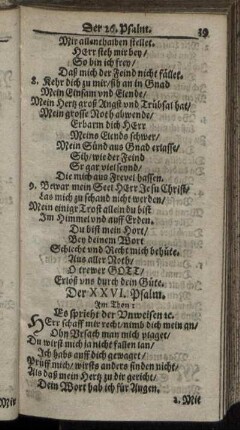 Der 26. Psalm. 39
Mir allenthalben stellet.
HErr steh mir bey/
So bin ich frey/
Daß mich der Feind nicht fället.
8. Kehr dich zu mir/sih an in Gnad
Mein Einsam und elende/
Mein Hertz groß Angst und Trübsal hat/
Mein grosse Noth abwende/
Erbarm dich HErr
Meins Elends schwer/
Mein Sünd aus Gnad erlasse/
Sih/wie der Feind
So gar viel seynd/
Die mich aus Frevel hassen.
9. Bewar mein Seel HErr Jesu Christ/
Las mich zu schand nicht werden/
Mein einigr Trost allein du bist
Im Himmel und auff Erden.
Du bist mein Hort/
Bey deinem Wort
Schlecht und Recht mich behüte.
Aus aller Noth/
O trewer GOTT/
Erlös uns durch dein Güte.
Der XXVI. Psalm.
Im Thon:
Es spricht der Unweisen ꝛc.
HErr schaff mir recht/nimb dich mein an/
Ohn Ursach man mich plaget/
Du wirst mich ja nicht fallen lan/
Ich habs auff dich gewaget/
Prüff mich/ wirsts anders finden nicht/
Als daß mein Hertz zu dir gericht/
Dein Wort hab ich für Augen.
2. Mit